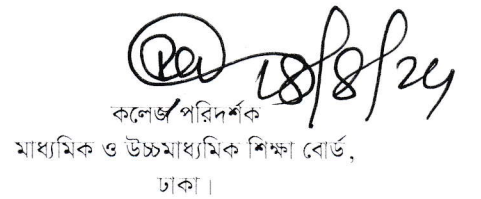 18/8/24
কলেজ পরিদর্শক
মাধ্যমিক ও উচ্চমাধ্যমিক শিক্ষা বোর্ড,
ঢাকা।